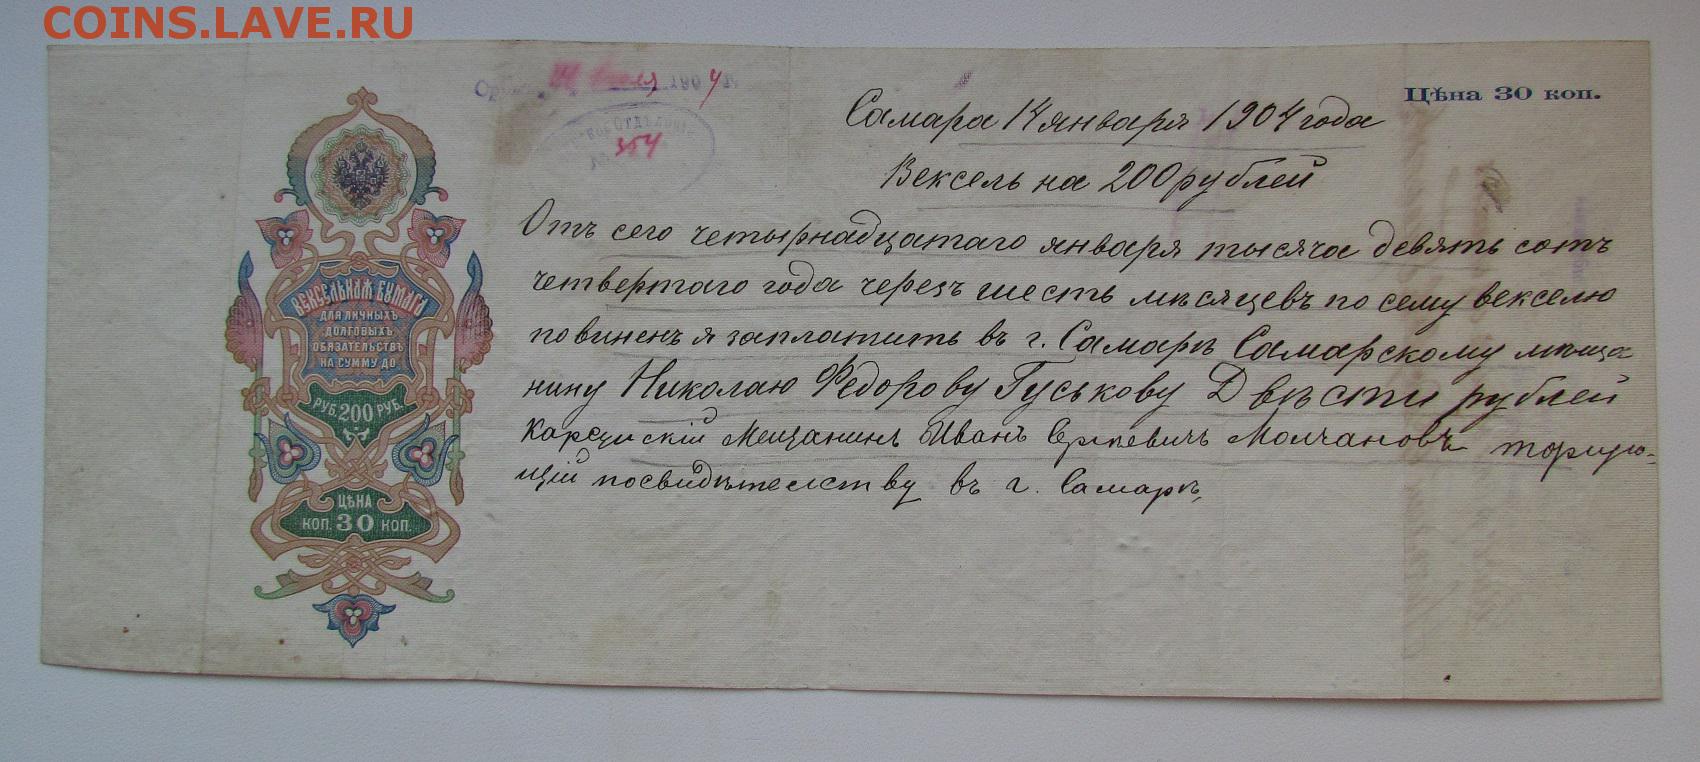 COINS.LAVE.RU
Цѣна 30 коп.
190 4
Отдѣленіе
354
Самара 14 января 1904 года
Вексель на 200 рублей
Отъ сего четырнадцатаго января тысяча девять сотъ
четвертаго года черезъ шесть мѣсяцевъ по сему векселю
повиненъ я заплатить въ г. Самарѣ Самарскому мѣща
нину Николаю Федорову Гуськову Двѣсти рублей
Мещанинъ Иванъ Сергѣевичъ Молчановъ торгую-
щій по свидѣтелству въ г. Самарѣ,
ВЕКСЕЛЬНАЯ БУМАГА
ДЛЯ ЛИЧНЫХЪ
ДОЛГОВЫХЪ
ОБЯЗАТЕЛЬСТВЪ
НА СУММУ ДО
РУБ. 200 РУБ.
ЦѢНА
КОП. 30 КОП.